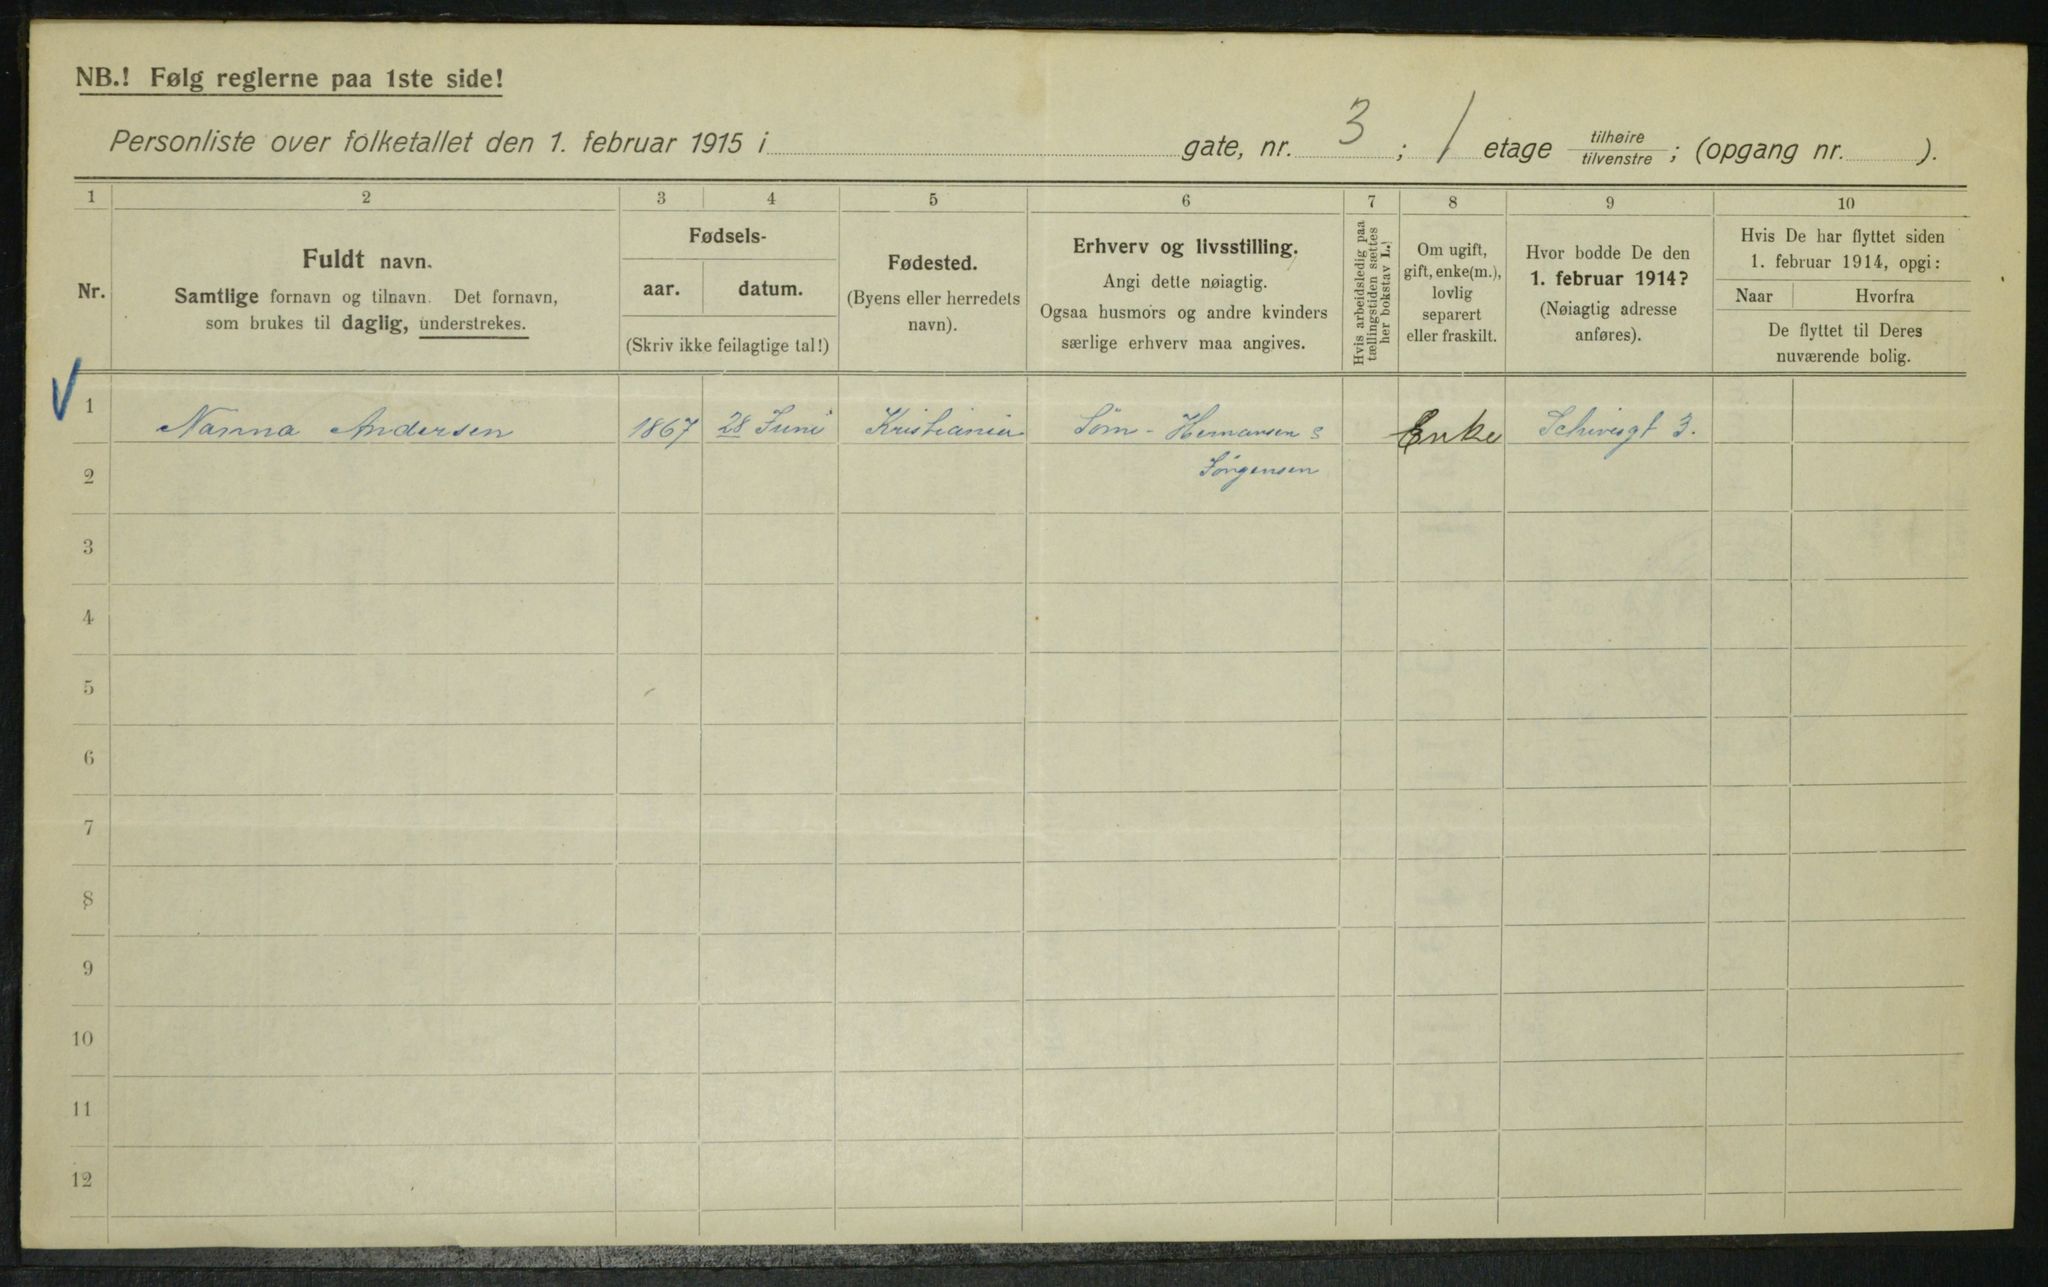 NB.! Følg reglerne paa 1ste side!
Personliste over folketallet den 1. februar 1915 i gate, nr. 3; 1 etage tilhøire/tilvenstre; (opgang nr. ).
1 2 3 4 5 6 7 8 9 10
Nr.
Fuldt navn.
Samtlige fornavn og tilnavn. Det fornavn,
som brukes til daglig, understrekes.
Fødsels-
aar. datum.
(Skriv ikke feilagtige tal!)
Fødested.
(Byens eller herredets
navn).
Erhverv og livsstilling.
Angi dette nøiagtig.
Ogsaa husmors og andre kvinders
særlige erhverv maa angives.
Hvis arbeidsledig paa
tællingstiden sættes
her bokstav L.!
Om ugift,
gift, enke(m.),
lovlig
separert
eller fraskilt.
Hvor bodde De den
1. februar 1914?
(Nøiagtig adresse
anføres).
Hvis De har flyttet siden
1. februar 1914, opgi:
Naar Hvorfra
De flyttet til Deres
nuværende bolig.
1 Nanna Andersen 1867 28 Juni Kristiania Søm - Enke 3.
Jörgensen
2
3
4
5
6
7
8
9
10
11
12